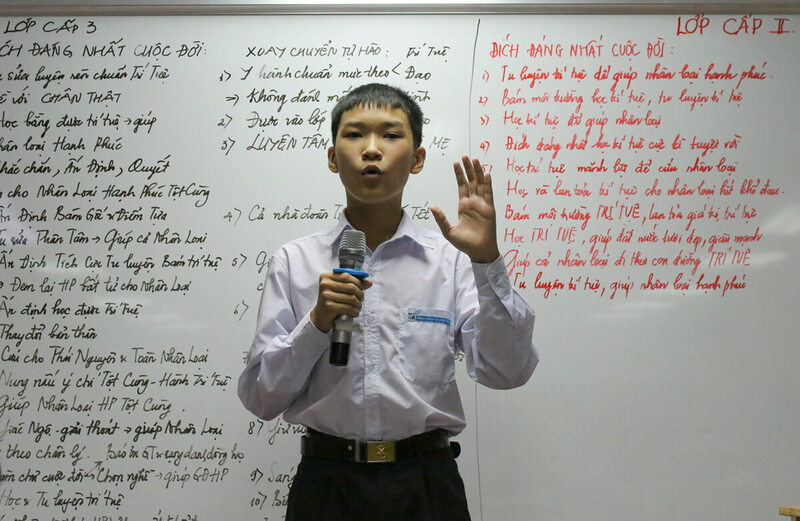 LỚP CẤP 3
ĐÍCH ĐÁNG NHẤT CUỘC ĐỜI:
sửa luyện nên chuẩn Trí Tuệ
với CHÂN THẬT
Học bằng được trí tuệ → giúp
nhân loại Hạnh Phúc
chắc chắn, Ấn Định, Quyết
cho Nhân Loại Hạnh Phúc Tột Cùng
Ấn Định Bám Gốc × Điểm Tựa
Tu sửa Phân Tâm → Giúp cả Nhân Loại
Ấn Định Tích Cực Tu luyện Bám trí tuệ
→ Đem lại HP bất tử cho Nhân Loại
Ấn định học được Trí Tuệ
Thay đổi bản thân
Cứu cho Thái Nguyên × Toàn Nhân Loại
Nung nấu ý chí Tột Cùng - Hành Trí Tuệ
Giúp Nhân Loại HP Tột Cùng.
Giác Ngộ - giải thoát → giúp Nhân Loại
theo chân lý.
cuộc đời → Chọn nghề → giúp GĐ HP
Học × Tu luyện trí tuệ
XOAY CHUYỂN TỰ HÀO: Trí Tuệ
1) Ý hành chuẩn mực theo < Đạo
⇒ Không đánh
2) Được vào lớp
3) LUYỆN TÂM MẸ
4) Cả nhà đoàn
5)
6)
8) Giữ
9) Sáng
10)
LỚP CẤP II
ĐÍCH ĐÁNG NHẤT CUỘC ĐỜI:
1) Tu luyện trí tuệ để giúp nhân loại hạnh phúc.
2) Bám môi trường học trí tuệ, tu luyện trí tuệ
3) Học trí tuệ để giúp nhân loại
4) Đích đáng nhất học trí tuệ cực kì tuyệt vời
5) Học trí tuệ mãnh liệt để cứu nhân loại
Học và lan tỏa trí tuệ cho nhân loại hết khổ đau.
Bám môi trường TRÍ TUỆ, lan tỏa giá trị trí tuệ
Học TRÍ TUỆ, giúp đất nước tươi đẹp, giàu mạnh
Giúp cả nhân loại đi theo con đường TRÍ TUỆ
Tu luyện trí tuệ, giúp nhân loại hạnh phúc